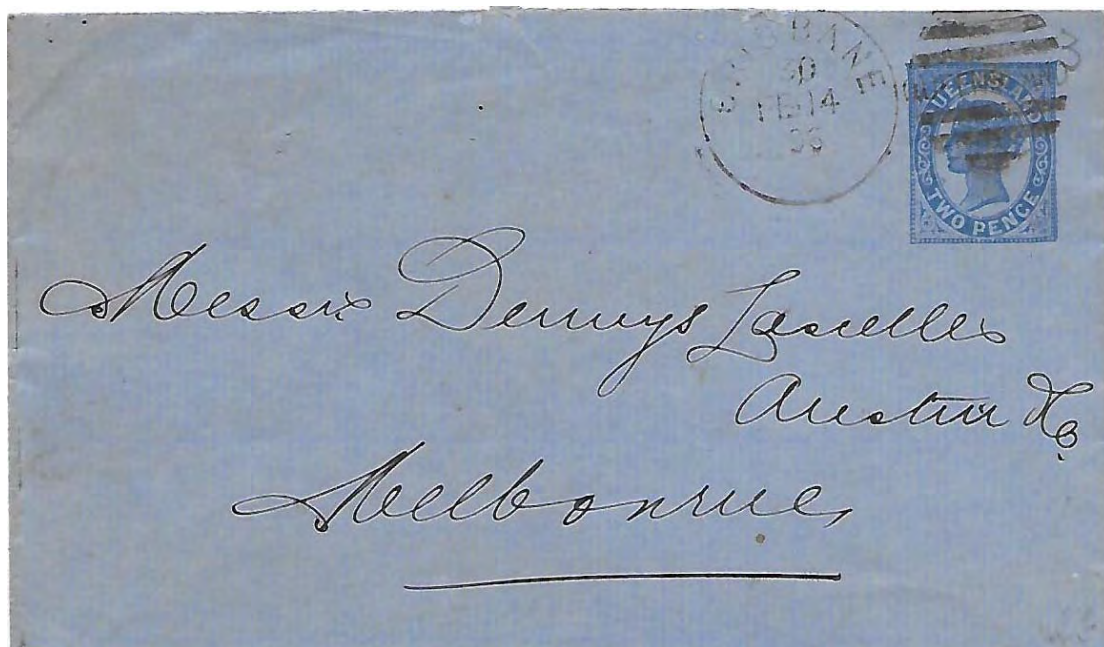 BRISBANE
FE 14
QUEENSLAND
TWO PENCE
Messrs Dennys Lascelles
Austin & Co
Melbourne